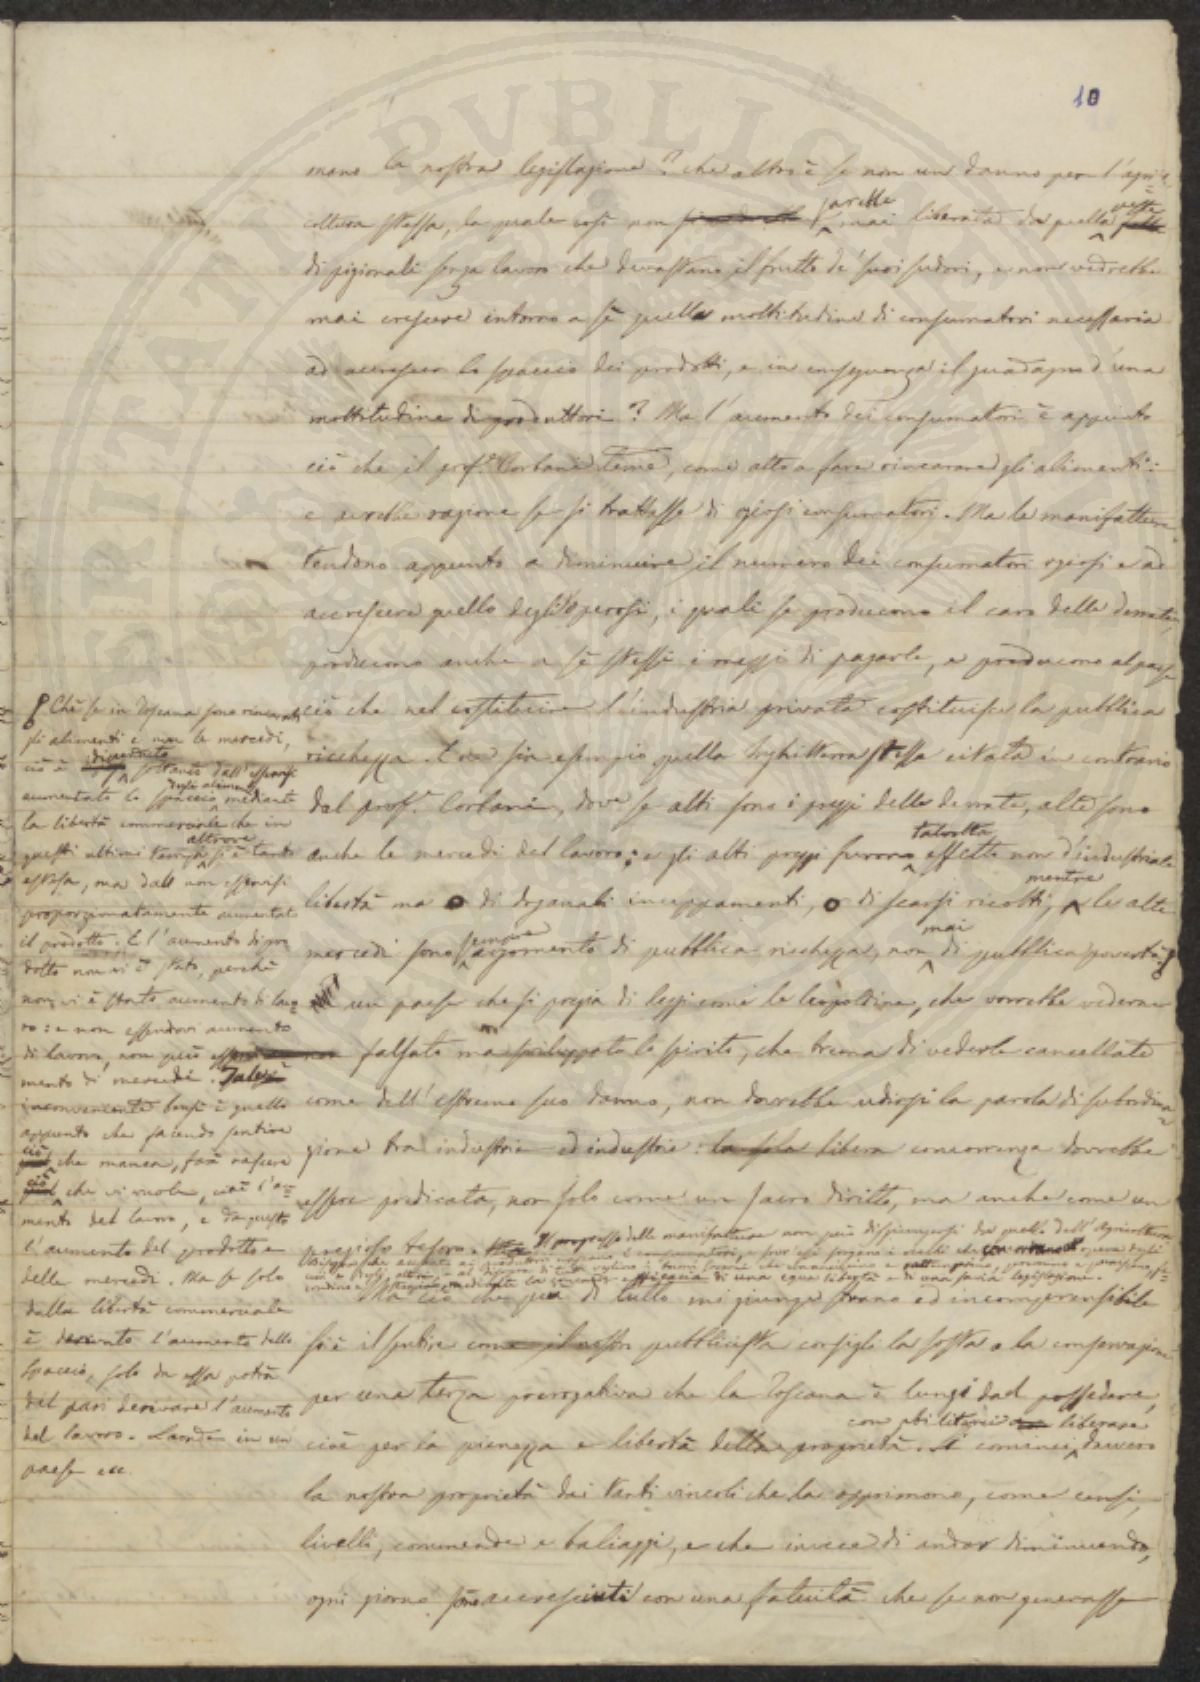 10
mano la nostra legislazione? che altro è se non un danno per l'agri=
coltura stessa, la quale così non sarebbe mai liberata da quella peste
di pigionali senza lavoro che devastano il frutto de' suoi sudori, e non vedrebbe
mai crescere intorno a sè quella moltitudine di consumatori necessaria
ad accrescer lo spaccio dei prodotti, e in conseguenza il guadagno d'una
moltitudine di produttori? Ma l'aumento dei consumatori è appunto
ciò che il prof.r Corbani teme, come atto a fare rincarare gli alimenti:
e avrebbe ragione se si trattasse di oziosi consumatori. Ma le manifatture
tendono appunto a diminuire il numero dei consumatori oziosi e ad
accrescere quello degli operosi, i quali se producono il caro delle derrate,
producono anche a sè stessi i mezzi di pagarle, e producono al paese
ciò che nel costituire l'industria privata costituisce la pubblica
ricchezza. E ne sia esempio quella Inghilterra stessa citata in contrario
dal prof.r Corbani, dove se alti sono i prezzi delle derrate, alte sono
anche le mercedi del lavoro; e gli alti prezzi furono talvolta effetto non d'industriale
libertà ma o di doganali inceppamenti, o di scarsi ricolti, mentre le alte
mercedi sono sempre argomento di pubblica ricchezza, non mai di pubblica povertà.
un paese che si pregia di leggi come le leopoldine, che vorrebbe vederne
non falsato ma sviluppato lo spirito, che trema di vederle cancellate
come dell'estremo suo danno, non dovrebbe udirsi la parola di subordina=
zione tra industria ed industria: la sola libera concorrenza dovrebbe
essere predicata, non solo come un sacro diritto, ma anche come un
prezioso tesoro. Il progresso delle manifatture non può disgiungersi da quello dell'Agricoltura
mediante la efficacia di una equa libertà e di una savia legislazione.
Ma ciò che più di tutto mi giunge strano ed incomprensibile
si è il sentire come il nostro pubblicista consigli la sosta e la conservazione
per una terza prerogativa che la Toscana è lungi dal possedere,
cioè per la pienezza e libertà della proprietà. Si cominci davvero con abilitarci a liberare
la nostra proprietà dai tanti vincoli che la opprimono, come censi,
livelli, commende e baliaggi, e che invece di andar diminuendo,
ogni giorno sono accresciuti con una fatuità che se non generasse
Chè se in Toscana sono rincarati
gli alimenti e non le mercedi,
ciò è dipenduto soltanto dall'essersi
aumentato lo spaccio degli alimenti mediante
la libertà commerciale che in
questi ultimi tempi si è altrove tanto
estesa, ma dal non essersi
proporzionatamente aumentato
il prodotto. E l'aumento di pro
dotto non vi è stato, perchè
non vi è stato aumento di lavo=
ro: e non essendovi aumento
di lavoro, non può esservi au
mento di mercedi. Tale
inconveniente bensì è quello
appunto che facendo sentire
ciò che manca, farà nascere
ciò che vi vuole, cioè l'au=
mento del lavoro, e da questo
l'aumento del prodotto e
delle mercedi. Ma se solo
dalla libertà commerciale
è derivato l'aumento dello
spaccio, solo da essa potrà
del pari derivare l'aumento
del lavoro. Laonde in un
paese ec.